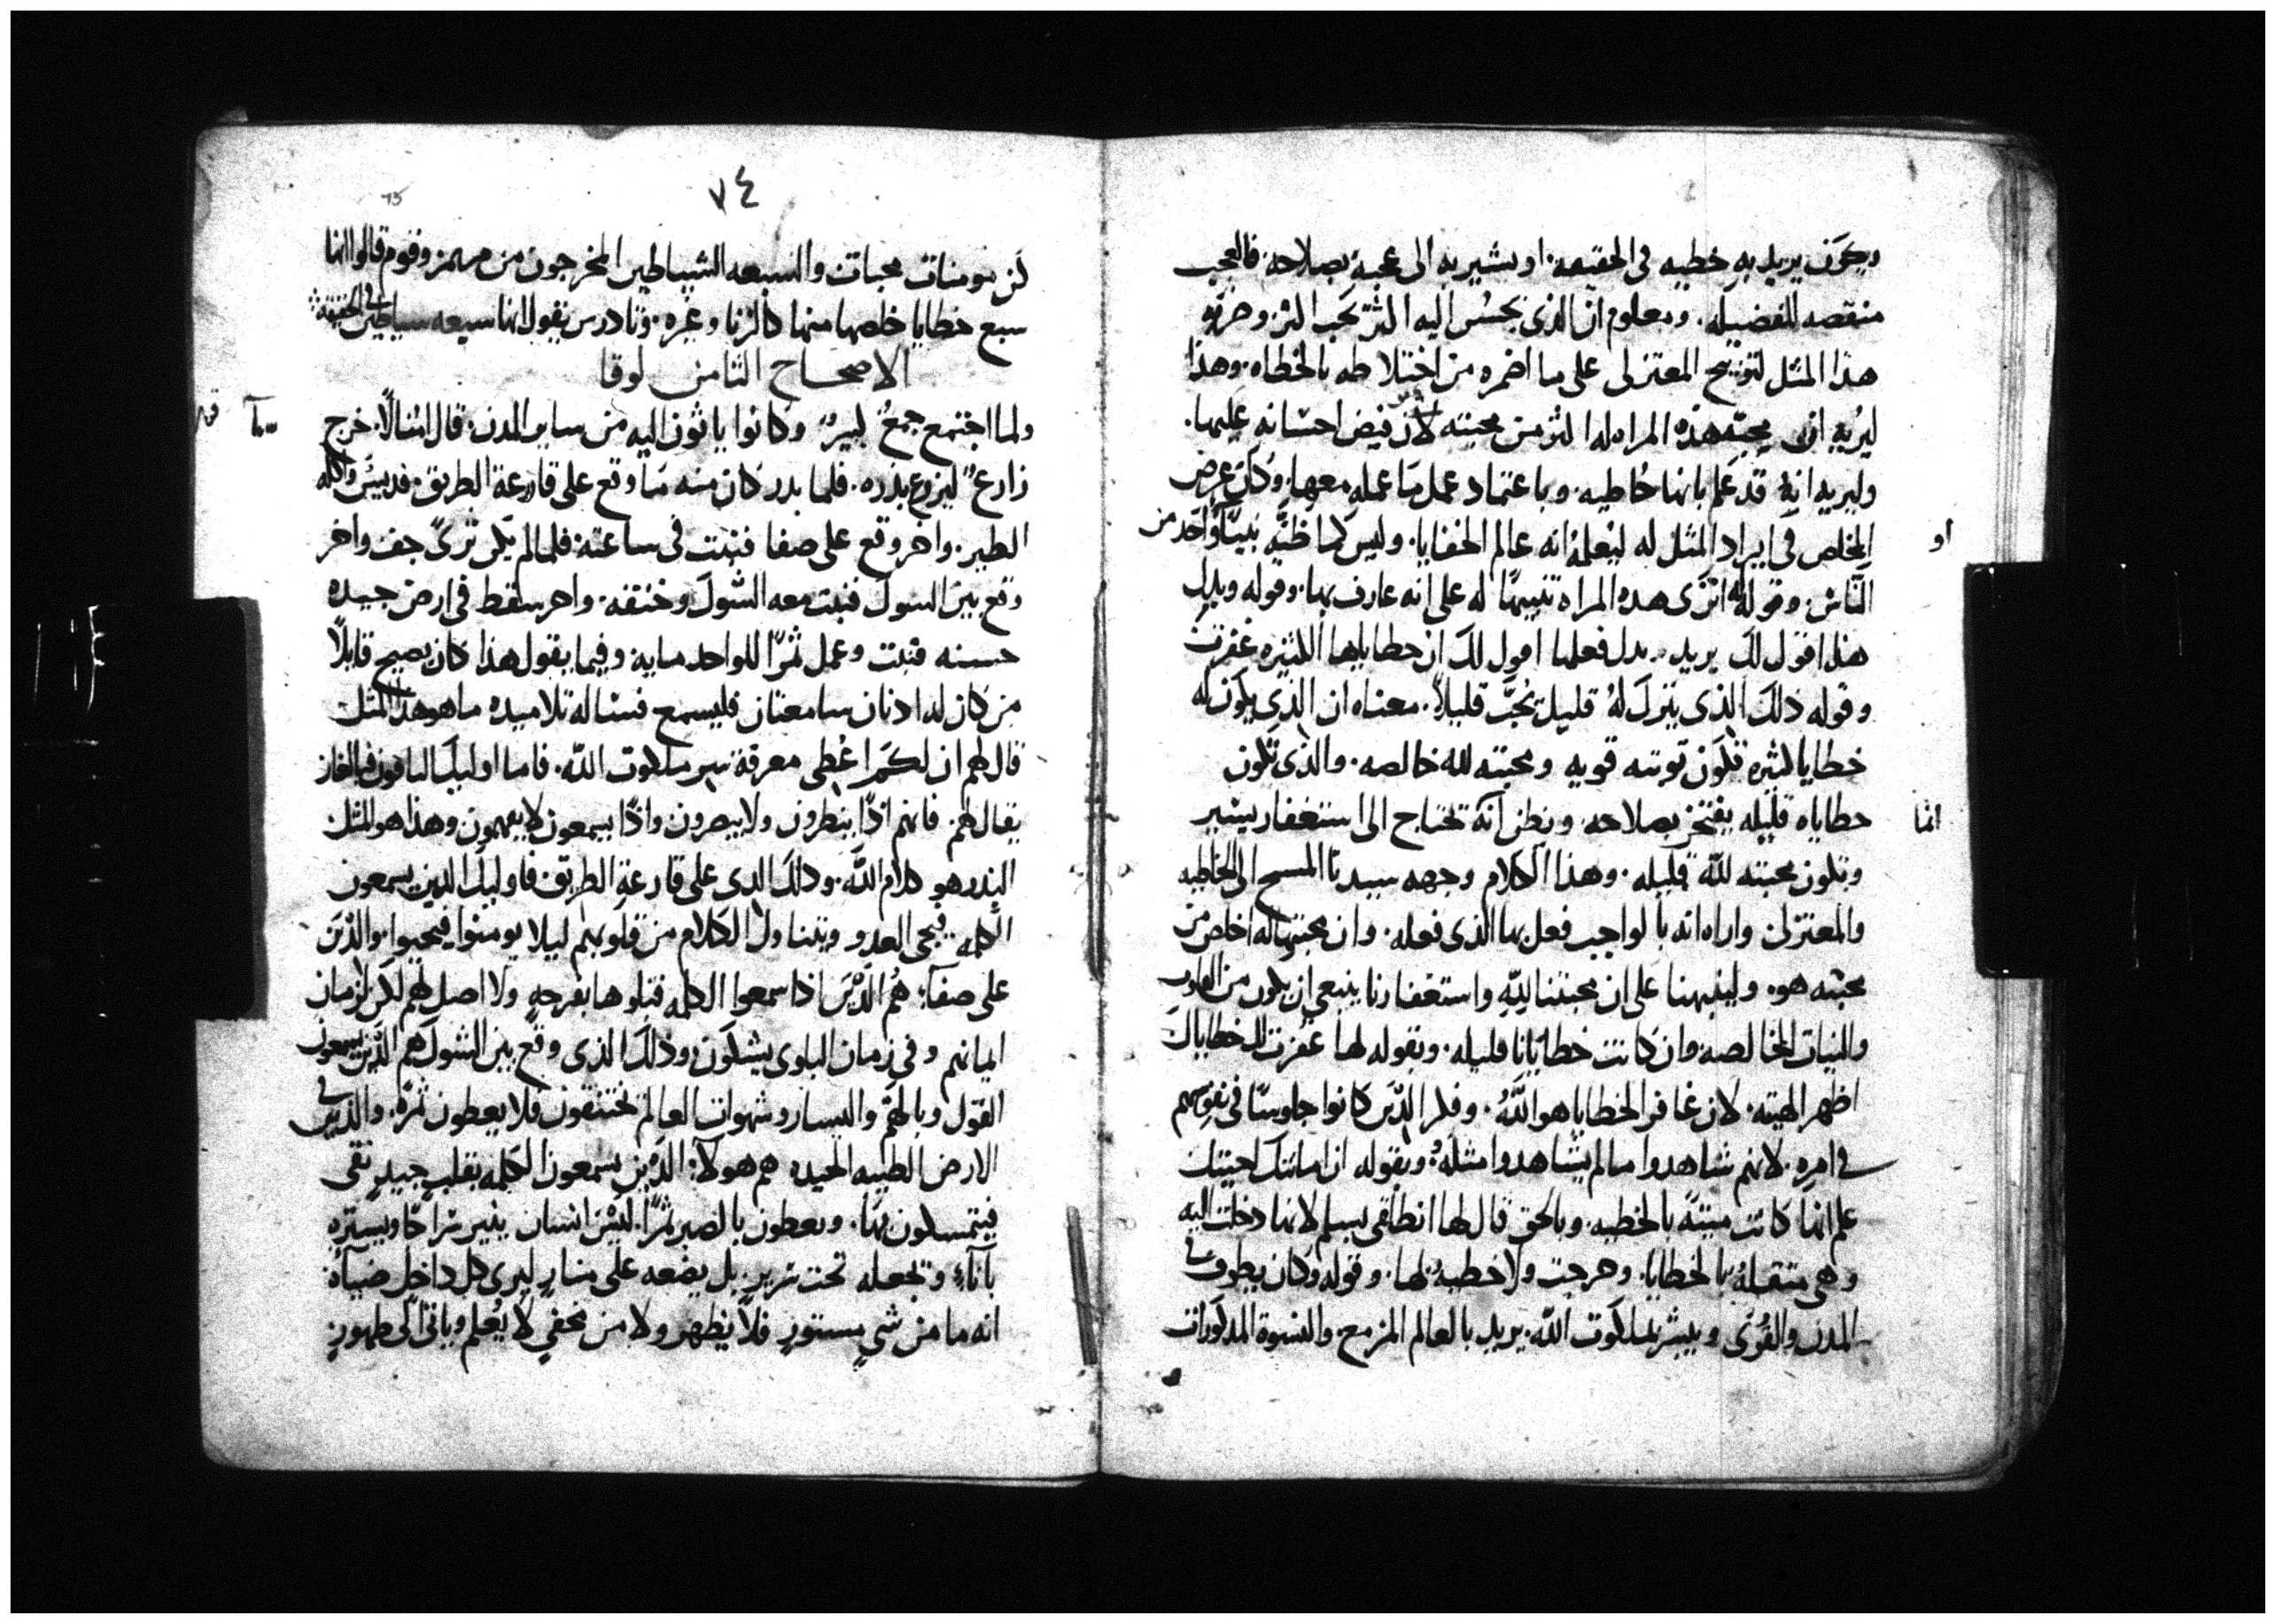 ويكون يريد به خطيه في الحقيقه. او يشير به الى عجبه بصلاحه. فالعجب
منقصه للفضيله. ومعلوم ان الذي يحسن اليه اكثر يحب اكثر وضربه
هذا المثل لتوبيخ المعتزلي على ما اضمره من اختلاطه بالخطاه. وهذا
ليريه ان محبة هذه المراه له اكثر من محبته لان فيض احسانه عليها.
وليريه انه قد علم بانها خاطيه. وباعتماد عمل ما عمله معها. وكان غرض
المخلص في ايراد المثل له ليعلمه انه عالم الخفايا. وليس كما ظنه نبيًا واحد من
او
الناس. وقوله اترى هذه المراه تنبيهًا له على انه عارف بها. وقوله وبدل
هذا اقول لك يريد. بدل فعلها اقول لك ان خطاياها الكثيره غفرت
وقوله ذلك الذي يترك له قليل يحب قليلاً. معناه ان الذي يكون له
خطايا كثيره تكون توبته قويه ومحبته لله خالصه. والذي تكون
خطاياه قليله يفتخر بصلاحه. ويظن انه تحتاج الى استغفار يسير
انما
وتكون محبته لله قليله. وهذا الكلام وجهه سيدنا المسيح الى الخاطيه
والمعتزلى واراه انه بالواجب فعل بها الذي فعله. وان محبتها له اخلص من
محبته هو. ولينبهنا على ان محبتنا لله واستغفارنا ينبغي ان يكون من القلوب
والنيات الخالصه وان كانت خطايانا قليله. وبقوله لها غفرت لك خطاياك
اظهر الهيته. لان غافر الخطايا هو الله. وفكر الذين كانوا جلوسًا في نفوسهم
في امره. لانهم شاهدوا ما لم يشاهدوا مثله. وبقوله ان امانتك احيتك
علم انها كانت ميته بالخطيه. وبالحق قال لها انطلقي بسلم لانها دخلت اليه
وهي مثقله بالخطايا. وخرجت ولا خطيه لها. وقوله وكان يطوف في
المدن والقرى ويبشر بملكوت الله. يريد بالعالم المزمع. والنسوة المذكورات
٧٤
75
كن مومنات محبات والسبعه الشياطين المخرجون من مريم وقوم قالوا انها
سبع خطايا خلصها منها كالزنا وغيره. وتادرس يقول انها سبعه شياطين في الحقيقة
الاصحاح الثامن لوقا
ولما اجتمع جمع كبير وكانوا ياتون اليه من ساير المدن. قال امثالاً. خرج
زارع ليزرع بذره. فلما بدر كان منه ما وقع على قارعة الطريق. فديس واكله
الطير. واخر وقع على صفا فنبت في ساعته فلما لم يكن ثرى جف واخر
وقع بين الشوك فنبت معه الشوك وخنقه. واخر سقط في ارض جيده
حسنه فنبت وعمل ثمرًا للواحد مايه وفيما يقول هذا كان يصيح قايلاً
من كان له ادنان سامعتان فليسمع فساله تلاميذه ما هو هذا المثل
قال لهم ان لكم اعطى معرفة سر ملكوت الله. فاما اوليك الباقون فبالغاز
يقال لهم. فانهم اذا ينظرون ولا يبصرون واذا يسمعون لا يفهمون وهذا هو المثل
البذر هو كلام الله. وذلك الذى على قارعة الطريق فاوليك الدين يسمعون
الكلمه فيجى العدو ويتناول الكلام من قلوبهم ليلا يومنوا فيحيوا. والذين
على صفا: هم الذين اذا سمعوا الكلمه قبلوها بفرحه ولا اصل لهم لكن لزمان
ايمانهم وفي زمان البلوى يشكون وذلك الذى وقع بين الشوك هم الذين يسمعون
القول وبالهم واليسار وشهوات العالم يختنقون فلا يعطون ثمره. والذين في
الارض الطيبه الجيده هم هولاء: الذين يسمعون الكلمه بقلب جيد نقى
فيتمسكون بها. ويعطون بالصبر ثمرًا. ليس انسان ينير سراجًا ويستره
باناء وتجعله تحت سرير. بل يضعه على منار ليرى كل داخل ضياه.
انه ما من شي مستور فلا يظهر ولا من مخفي لا يعلم وياتي الى ظهور